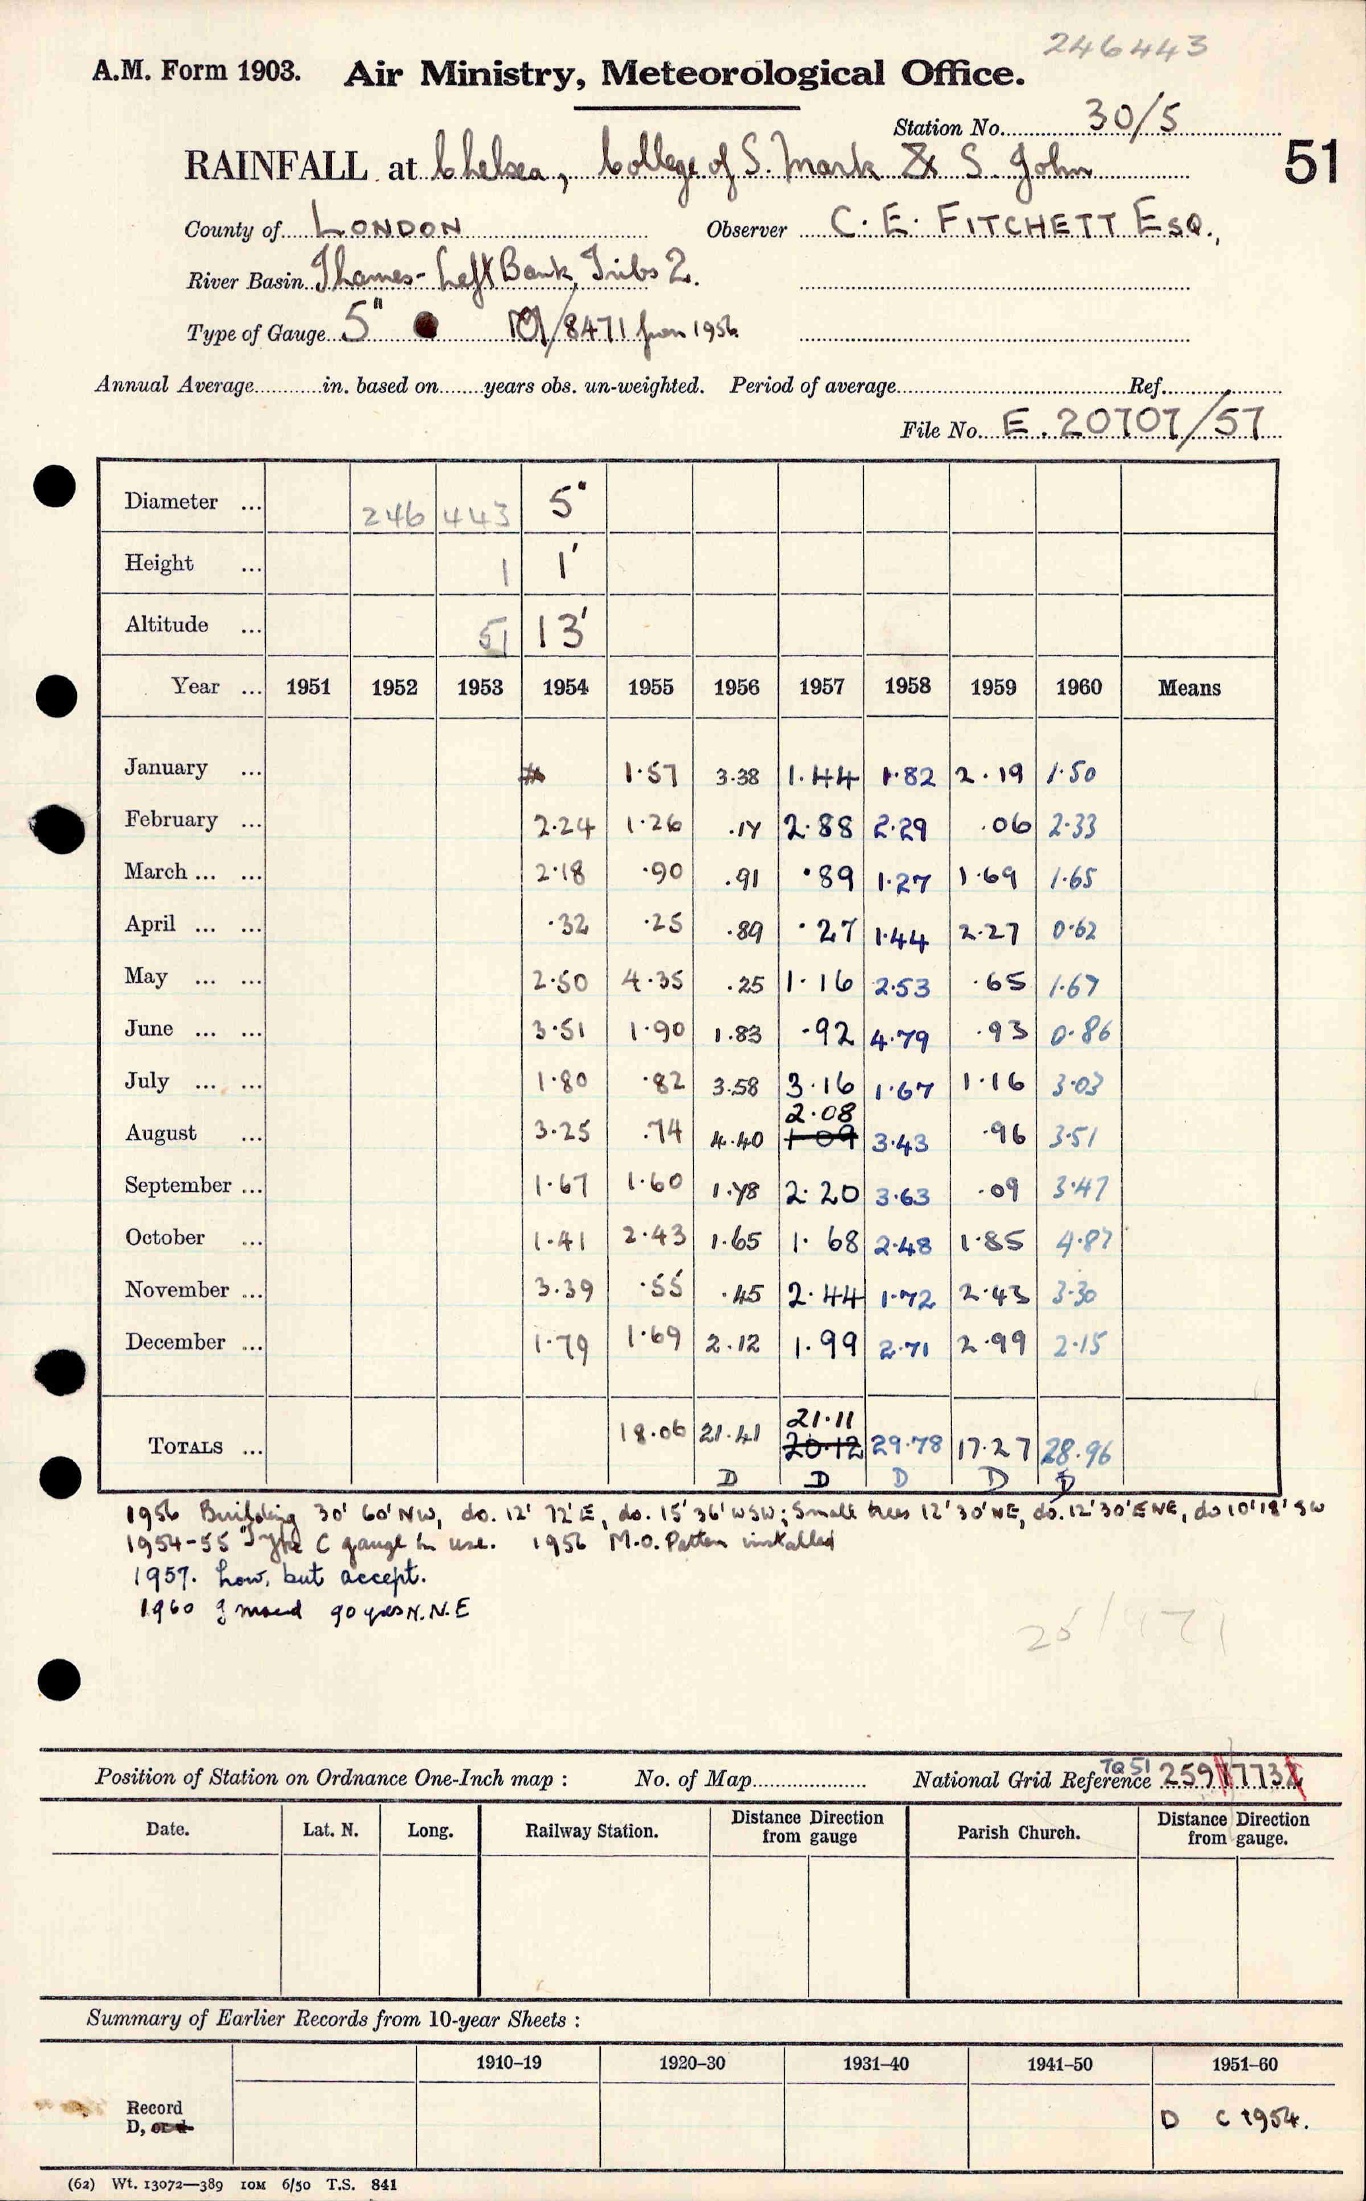 246443
A.M. Form 1903. Air Ministry, Meteorological Office.
Station No. 30/5
RAINFALL at Chelsea, College of S. Mark & S. John
51
County of LONDON Observer C. E. FITCHETT ESQ.,
River Basin Thames - Left Bank, Tribs 2.
Type of Gauge 5" /8471 from 1956
Annual Average in. based on years obs. un-weighted. Period of average Ref.
File No. E. 20707/57
Diameter ... 246 443 5"
Height ... 1 1'
Altitude ... 51 13'
Year ... 1951 1952 1953 1954 1955 1956 1957 1958 1959 1960 Means
January ... 1.57 3.38 1.44 1.82 2.19 1.50
February ... 2.24 1.26 .17 2.88 2.29 .06 2.33
March ... ... 2.18 .90 .91 .89 1.27 1.69 1.65
April ... ... .32 .25 .89 .27 1.44 2.27 0.62
May ... ... 2.50 4.35 .25 1.16 2.53 .65 1.67
June ... ... 3.51 1.90 1.83 .92 4.79 .93 0.86
July ... ... 1.80 .82 3.58 3.16 1.67 1.16 3.03
2.08
August ... 3.25 .74 4.40 1.09 3.43 .96 3.51
September ... 1.67 1.60 1.78 2.20 3.63 .09 3.47
October ... 1.41 2.43 1.65 1.68 2.48 1.85 4.87
November ... 3.39 .55 .45 2.44 1.72 2.43 3.30
December ... 1.79 1.69 2.12 1.99 2.71 2.99 2.15
21.11
TOTALS ... 18.06 21.41 20.12 29.78 17.27 28.96
D D D D D
1956 Building 30' 60' NW, do. 12' 72' E, do. 15' 36' WSW; Small trees 12' 30' NE, do. 12' 30' ENE, do 10' 18' SW
1954-55 Type C gauge in use. 1956 M.O. Pattern installed
1957. Low, but accept.
1960 g moved 90 yds N.N.E
Position of Station on Ordnance One-Inch map : No. of Map National Grid Reference TQ 51 259 773
Date. Lat. N. Long. Railway Station. Distance from gauge Direction Parish Church. Distance from gauge. Direction
Summary of Earlier Records from 10-year Sheets :
1910–19 1920–30 1931–40 1941–50 1951–60
Record
D, D C 1954.
(62) Wt. 13072—389 10M 6/50 T.S. 841